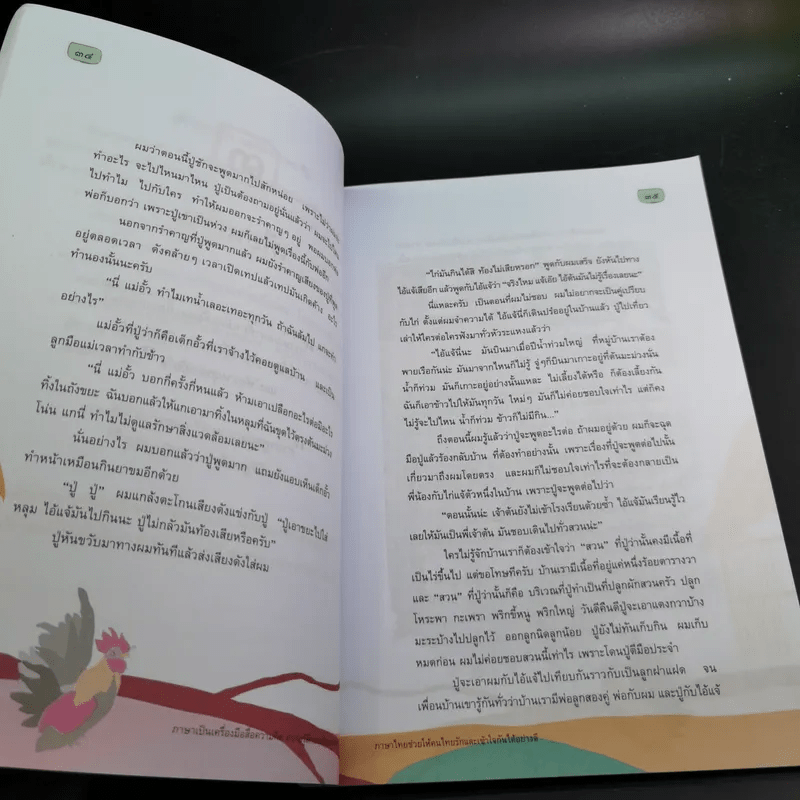 ๓๔
ผมว่าตอนนี้ปู่ชักจะพูดมากไปสักหน่อย เพราะไม่ว่าผมจะ
ทำอะไร จะไปไหนมาไหน ปู่เป็นต้องถามอยู่นั่นแล้วว่า
ไปทำไม ไปกับใคร ทำให้ผมออกจะรำคาญๆ อยู่
พ่อก็บอกว่า เพราะปู่เขาเป็นห่วง ผมก็เลยไม่พูดเรื่องนี้กับพ่ออีก
นอกจากรำคาญที่ปู่พูดมากแล้ว ผมยังรำคาญเสียงของปู่ที่พูด
อยู่ตลอดเวลา ดังคล้ายๆ เวลาเปิดเทปแล้วเทปมันเกิดค้าง
ทำนองนั้นนะครับ
“นี่ แม่อั้ว ทำไมเทน้ำเลอะเทอะทุกวัน ถ้าฉันล้มไป แกจะทำ
อย่างไร”
แม่อั้วที่ปู่ว่าก็คือเด็กอั้วที่เราจ้างไว้คอยดูแลบ้าน และเป็น
ลูกมือแม่เวลาทำกับข้าว
“นี่ แม่อั้ว บอกกี่ครั้งกี่หนแล้ว ห้ามเอาเปลือกอะไรต่อมิอะไร
ทิ้งในถังขยะ ฉันบอกแล้วให้แกเอามาทิ้งในหลุมที่ฉันขุดไว้ตรงต้นมะม่วง
โน่น แกนี่ ทำไมไม่ดูแลรักษาสิ่งแวดล้อมเลยนะ”
นั่นอย่างไร ผมบอกแล้วว่าปู่พูดมาก แถมยังแอบเห็นเด็กอั้ว
ทำหน้าเหมือนกินยาขมอีกด้วย
“ปู่ ปู่” ผมแกล้งตะโกนเสียงดังแข่งกับปู่ “ปู่เอาขยะไปใส่
หลุม ไอ้แจ้มันไปกินนะ ปู่ไม่กลัวมันท้องเสียหรือครับ”
ปู่หันขวับมาทางผมทันทีแล้วส่งเสียงดังใส่ผม
ภาษาเป็นเครื่องมือสื่อความคิด
๓๕
“ไก่มันกินได้สิ ท้องไม่เสียหรอก” พูดกับผมเสร็จ ยังหันไปทาง
ไอ้แจ้เสียอีก แล้วพูดกับไอ้แจ้ว่า “จริงไหม แจ้เอ๊ย ไอ้ต้นมันไม่รู้เรื่องเลยนะ”
นี่แหละครับ เป็นตอนที่ผมไม่ชอบ ผมไม่อยากจะเป็นคู่เปรียบ
กับไก่ ตั้งแต่ผมจำความได้ ไอ้แจ้นี่ก็เดินปร๋ออยู่ในบ้านแล้ว ปู่ไปเที่ยว
เล่าให้ใครต่อใครฟังมาทั่วหัวระแหงแล้วว่า
“ไอ้แจ้นี่นะ มันบินมาเมื่อปีน้ำท่วมใหญ่ ที่หมู่บ้านเราต้อง
พายเรือกันน่ะ มันมาจากไหนก็ไม่รู้ จู่ๆก็บินมาเกาะอยู่ที่ต้นมะม่วงนั่น
น้ำก็ท่วม มันก็เกาะอยู่อย่างนั้นแหละ ไม่เลี้ยงได้หรือ ก็ต้องเลี้ยงกัน
ฉันก็เอาข้าวไปให้มันทุกวัน ใหม่ๆ มันก็ไม่ค่อยชอบใจเท่าไร แต่ก็คง
ไม่รู้จะไปไหน น้ำก็ท่วม ข้าวก็ไม่มีกิน...”
ถึงตอนนี้ผมรู้แล้วว่าปู่จะพูดอะไรต่อ ถ้าผมอยู่ด้วย ผมก็จะฉุด
มือปู่แล้วร้องกลับบ้าน ที่ต้องทำอย่างนั้น เพราะเรื่องที่ปู่จะพูดต่อไปนั้น
เกี่ยวมาถึงผมโดยตรง และผมก็ไม่ชอบใจเท่าไรที่จะต้องกลายเป็น
พี่น้องกับไก่แจ้ตัวหนึ่งในบ้าน เพราะปู่จะพูดต่อไปว่า
“ตอนนั้นน่ะ เจ้าต้นยังไม่เข้าโรงเรียนด้วยซ้ำ ไอ้แจ้มันเรียนรู้ไว
เลยให้มันเป็นพี่เจ้าต้น มันชอบเดินไปทั่วสวนน่ะ”
ใครไม่รู้จักบ้านเราก็ต้องเข้าใจว่า “สวน” ที่ปู่ว่านั้นคงมีเนื้อที่
เป็นไร่ขึ้นไป แต่ขอโทษทีครับ บ้านเรามีเนื้อที่อยู่แค่หนึ่งร้อยตารางวา
และ “สวน” ที่ปู่ว่านั้นก็คือ บริเวณที่ปู่ทำเป็นที่ปลูกผักสวนครัว ปลูก
โหระพา กะเพรา พริกขี้หนู พริกใหญ่ วันดีคืนดีปู่จะเอาแตงกวาบ้าง
มะระบ้างไปปลูกไว้ ออกลูกนิดลูกน้อย ปู่ยังไม่ทันเก็บกิน ผมเก็บ
หมดก่อน ผมไม่ค่อยชอบสวนนี้เท่าไร เพราะโดนปู่ตีมือประจำ
ปู่จะเอาผมกับไอ้แจ้ไปเทียบกันราวกับเป็นลูกฝาแฝด จน
เพื่อนบ้านเขารู้กันทั่วว่าบ้านเรามีพ่อลูกสองคู่ พ่อกับผม และปู่กับไอ้แจ้
ภาษาไทยช่วยให้คนไทยรักและเข้าใจกันได้อย่างดี